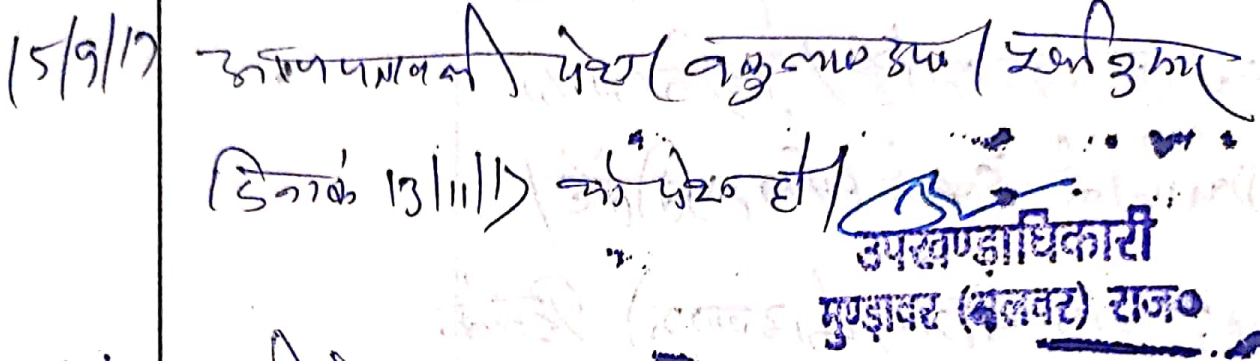 15/9/17 आज पत्रावली पेश। वकुलाय उप०।
दिनांक 13/11/17 को पेश हो।
उपखण्डाधिकारी
मुण्डावर (अलवर) राज०